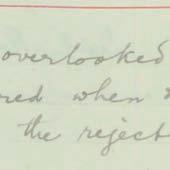 overlooked
red when
the reject